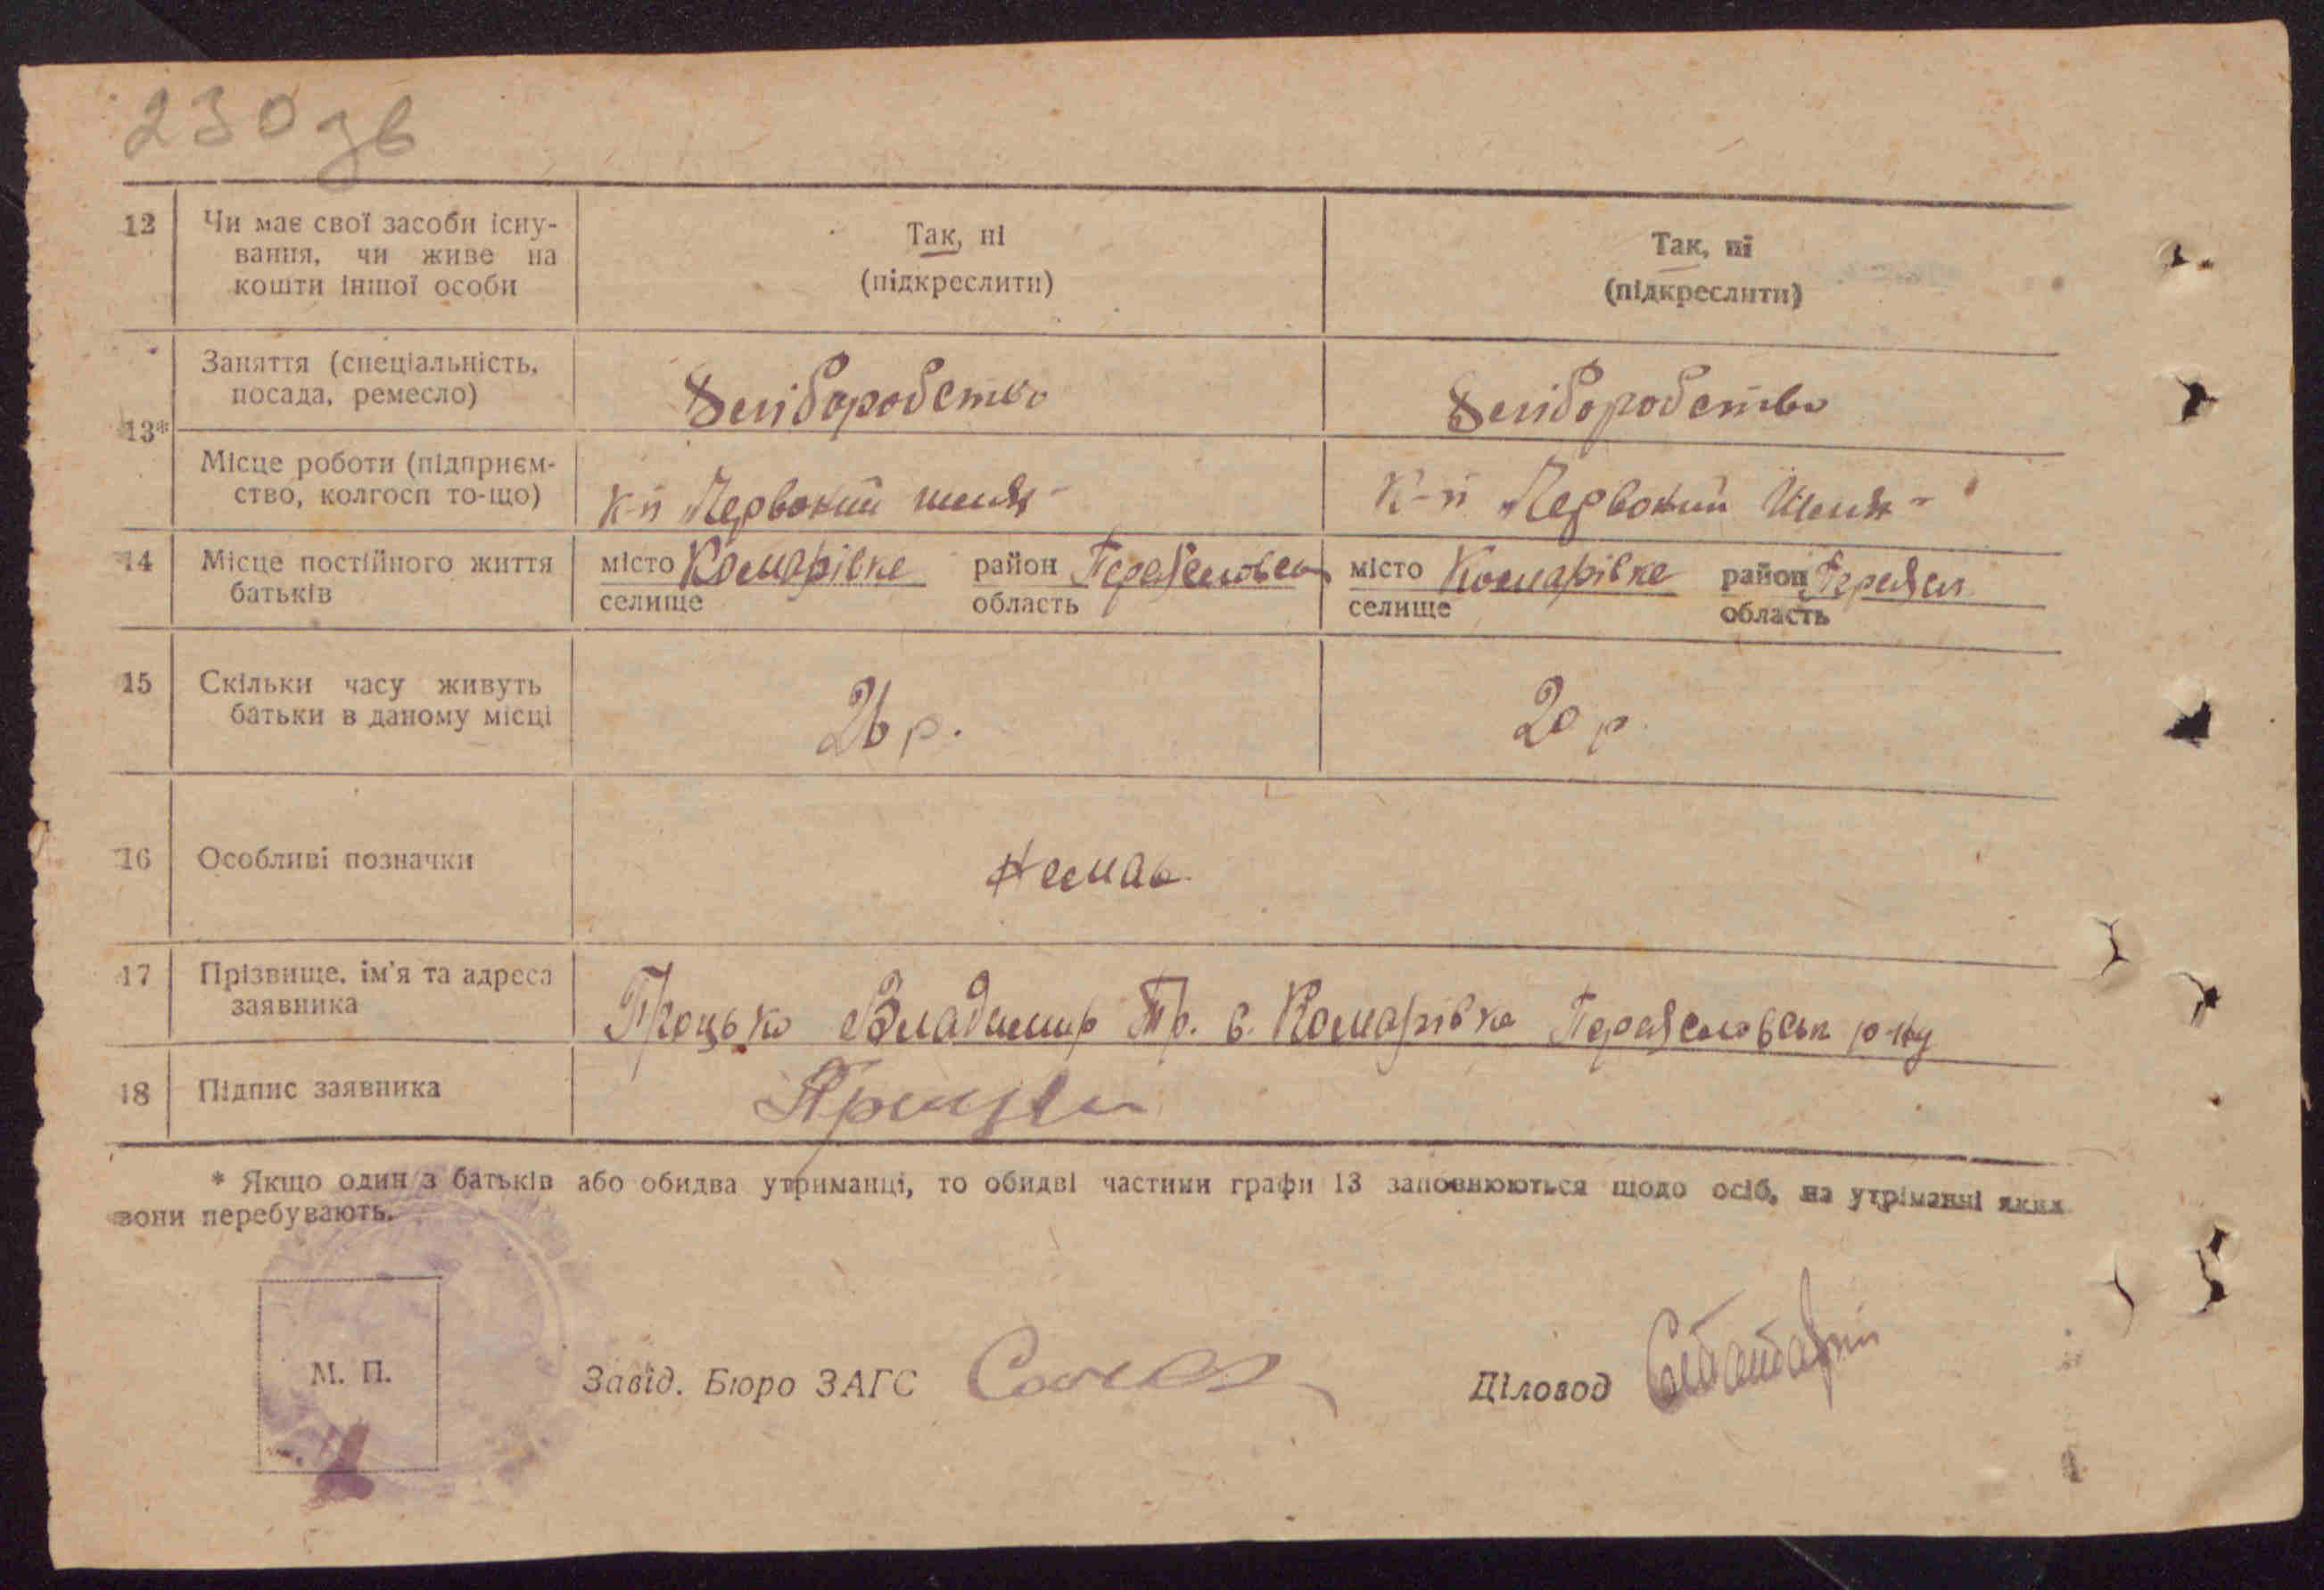 230зв
12 Чи має свої засоби існу-
вання, чи живе на
кошти іншої особи
Так, ні
(підкреслити)
Так, ні
(підкреслити)
13*
Заняття (спеціальність,
посада, ремесло)
Хліборобство
Хліборобство
Місце роботи (підприєм-
ство, колгосп то-що)
к-п Червоний шлях
К-п Червоний Шлях
14 Місце постійного життя
батьків
місто Комарівка район Переяславськ
селище область
місто Комарівка район Переясл
селище область
15 Скільки часу живуть
батьки в даному місці
26 р.
20 р
16 Особливі позначки
немає
17 Прізвище, ім'я та адреса
заявника
Процько Владимир Тр. с. Комарівка Переяславськ р-ну
18 Підпис заявника
* Якщо один з батьків або обидва утриманці, то обидві частини графи 13 заповнюються щодо осіб, на утріманні яких
вони перебувають.
М. П.
Завід. Бюро ЗАГС
Діловод